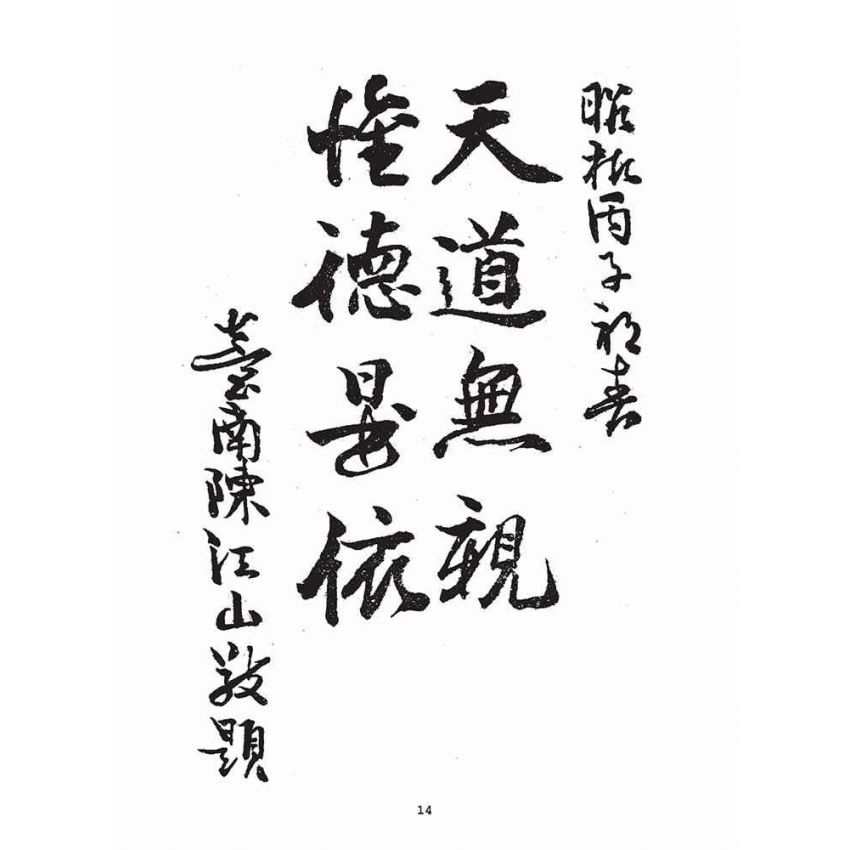 昭和丙子初春
天道無親
惟德是依
臺南陳江山敬題
14